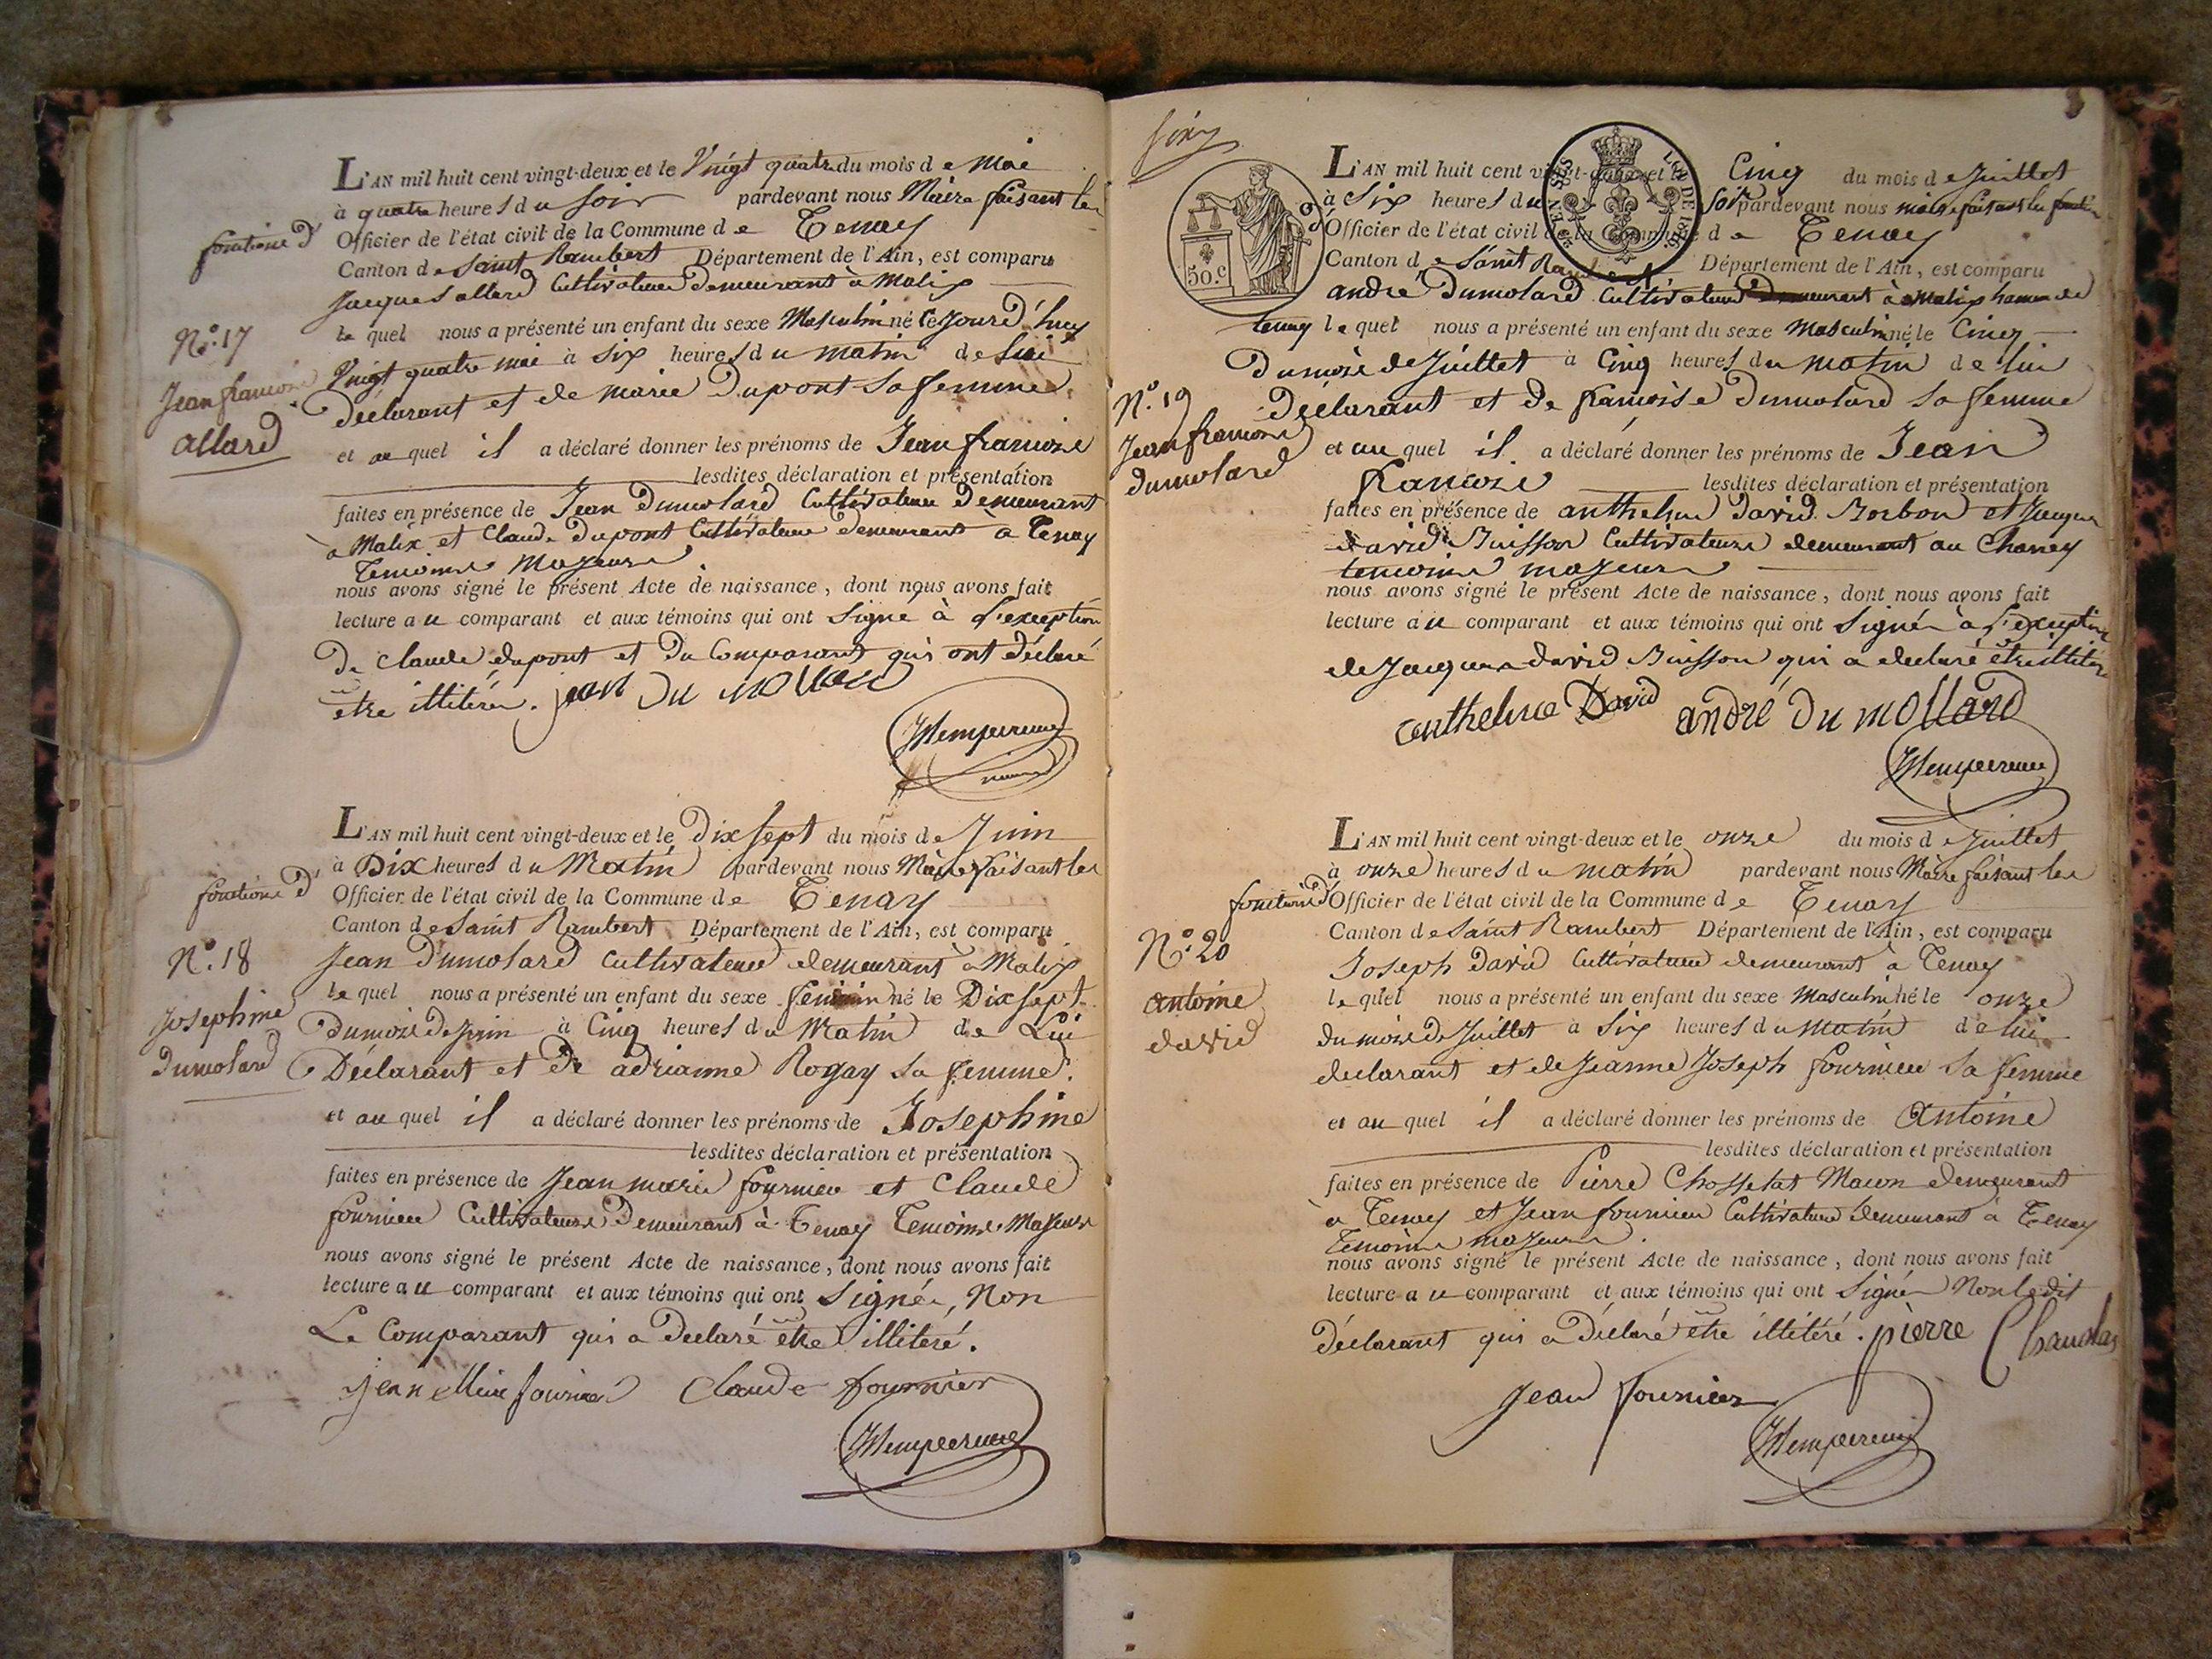 L'AN mil huit cent vingt-deux et le Vingt quatre du mois de Mai
à quatre heures du Soir pardevant nous Maire faisant les
fonctions d' Officier de l'état civil de la Commune de Tenay
Canton de Saint Rambert Département de l'Ain, est comparu
Jacques allard Cultivateur Demeurant à Malix
le quel nous a présenté un enfant du sexe Masculin né le jourd'huy
Vingt quatre mai à Six heures du matin de lui
N.º 17
Jean françois
allard
Déclarant et de marie Dupont Sa femme
et au quel il a déclaré donner les prénoms de Jean françois
lesdites déclaration et présentation
faites en présence de Jean Dumolard Cultivateur Demeurant
à Malix et Claude Dupont Cultivateur demeurant à Tenay
Temoins Majeurs
nous avons signé le présent Acte de naissance, dont nous avons fait
lecture au comparant et aux témoins qui ont Signé à l'exception
De Claude dupont et Du Comparant qui ont déclaré
etre illitérés. jean Du mollard
L'AN mil huit cent vingt-deux et le Dix Sept du mois de Juin
à Dix heures du Matin pardevant nous Maire faisant les
fonctions d' Officier de l'état civil de la Commune de Tenay
Canton de Saint Rambert Département de l'Ain, est comparu
N.º 18
Josephine
Dumolard
Jean Dumolard Cultivateur demeurant à Malix
le quel nous a présenté un enfant du sexe feminin né le Dix Sept
Du mois de juin à Cinq heures du Matin de Lui
Déclarant et De adrianne Rogay Sa femme.
et au quel il a déclaré donner les prénoms de Josephine
lesdites déclaration et présentation
faites en présence de Jean marie fournier et Claude
fournier Cultivateurs Demeurant à Tenay Temoins Majeurs
nous avons signé le présent Acte de naissance, dont nous avons fait
lecture au comparant et aux témoins qui ont Signés, Non
Le Comparant qui a Declaré etre illitéré.
Claude fournier
L'AN mil huit cent vingt-deux et le Cinq du mois de Juillet
à Six heures du Soir pardevant nous maire faisant les
Officier de l'état civil de la Commune de Tenay
50.C
LOI DE 1816
Canton de Saint Rambert Département de l'Ain, est comparu
andré Dumolard Cultivateur Demeurant à Malix hameau de
Tenay le quel nous a présenté un enfant du sexe Masculin né le Cinq
Du mois de Juillet à Cinq heures du matin de lui
N.º 19
Jean françois
dumolard
Déclarant et De françoise Dumolard Sa femme
et au quel il a déclaré donner les prénoms de Jean
françois lesdites déclaration et présentation
faites en présence de anthelme David et Jacques
david Buisson Cultivateurs demeurant au Chaney
temoins majeurs
nous avons signé le présent Acte de naissance, dont nous avons fait
lecture au comparant et aux témoins qui ont Signés à l'exception
de Jacques david Buisson qui a declaré etre illitéré
anthelme David andré Du mollard
L'AN mil huit cent vingt-deux et le onze du mois de Juillet
à onze heures du matin pardevant nous Maire faisant les
fonctions d' Officier de l'état civil de la Commune de Tenay
Canton de Saint Rambert Département de l'Ain, est comparu
N.º 20
antoine
david
Joseph David Cultivateur demeurant à Tenay
le quel nous a présenté un enfant du sexe Masculin né le onze
du mois de Juillet à Six heures du matin de lui
declarant et de Jeanne Joseph fournier Sa femme
et au quel il a déclaré donner les prénoms de Antoine
lesdites déclaration et présentation
faites en présence de Pierre Maçon demeurant
à Tenay et Jean fournier Cultivateur demeurant à Tenay
Temoins majeurs.
nous avons signé le présent Acte de naissance, dont nous avons fait
lecture au comparant et aux témoins qui ont Signés Non ledit
déclarant qui a Déclaré etre illitéré. pierre
Jean fournier